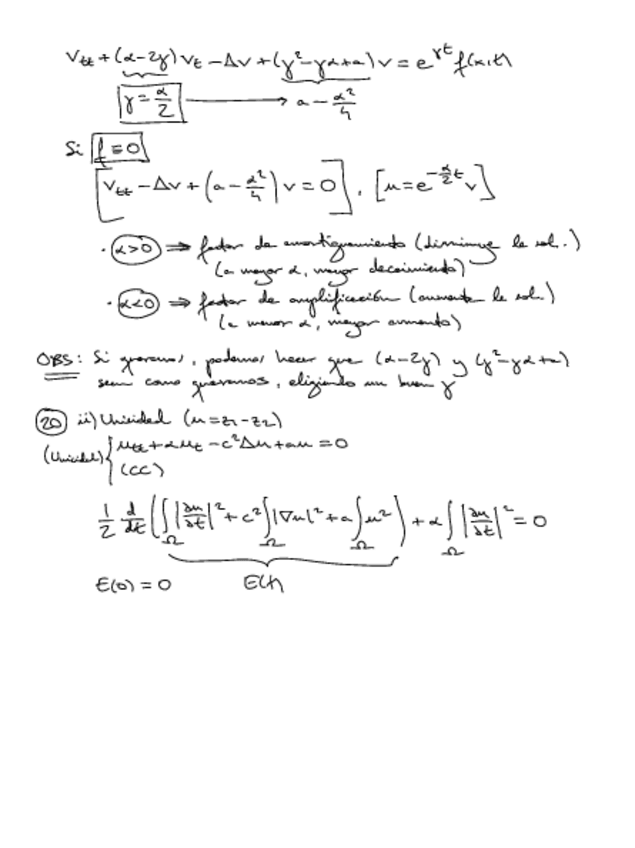 V_tt + (α-2γ) V_t - ΔV + (γ²-γα+a) V = e^{γt} f(x,t)
γ = α/2 ⟶ a - α²/4
Si f ≡ 0
[V_tt - ΔV + (a - α²/4) V = 0], [u = e^{-α/2 t} V]
· α>0 ⟹ factor de amortiguamiento (disminuye la sol.)
(a mayor α, mayor decaimiento)
· α<0 ⟹ factor de amplificación (aumenta la sol.)
(a menor α, mayor aumento)
OBS: Si queremos, podemos hacer que (α-2γ) y (γ²-γα+a)
sean como queramos, eligiendo un buen γ
20 ii) Unicidad (u = z₁ - z₂)
(Unicidad) { u_tt + αu_t - c²Δu + au = 0
(CC)
1/2 d/dt (∫_Ω |∂u/∂t|² + c² ∫_Ω |∇u|² + a ∫_Ω u²) + α ∫_Ω |∂u/∂t|² = 0
E(0) = 0 E(t)